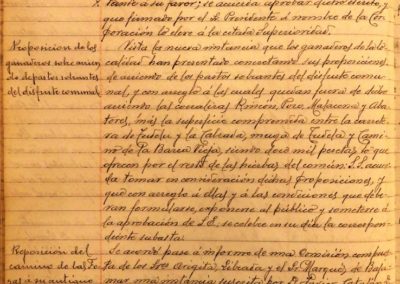 tante a su favor; se acuerda aprobar dicho escrito, y
que firmado por el Sr. Presidente á nombre de la Cor-
poración le eleve á la citada Superioridad.
Proposicion de los
ganaderos sobre aumto
de pastos sobrantes
del disfrute comunal.
Vista la nueva instancia que los ganaderos de la lo-
calidad han presentado concretando sus proposiciones
de aumento de los pastos sobrantes del disfrute comu-
nal, y con arreglo á las cuales quedan fuera de dicho
aumento las corralizas Rincón, Pozo, Mataseca y Aba-
tores, más la superficie comprendida entre la carrete-
ra de Tudela y la Calzada, muga de Tudela y Cami-
no de la Barca Vieja, siendo mil pesetas lo que
ofrecen por el resto de las hierbas del común: S.E. acuer-
da tomar en consideración dichas proposiciones, y
que con arreglo á ellas y á las condiciones que debe-
ran formularse, exponerse al público y someterse á
la aprobación de S.E. se celebre en su día la correspon-
diente subasta.
Reposición del
camino de las
á su antiguo
Se acordó pase á informe de una Comisión compues-
ta de los Sres. y el Sr. Marqués de
mar una instancia suscrita por D.